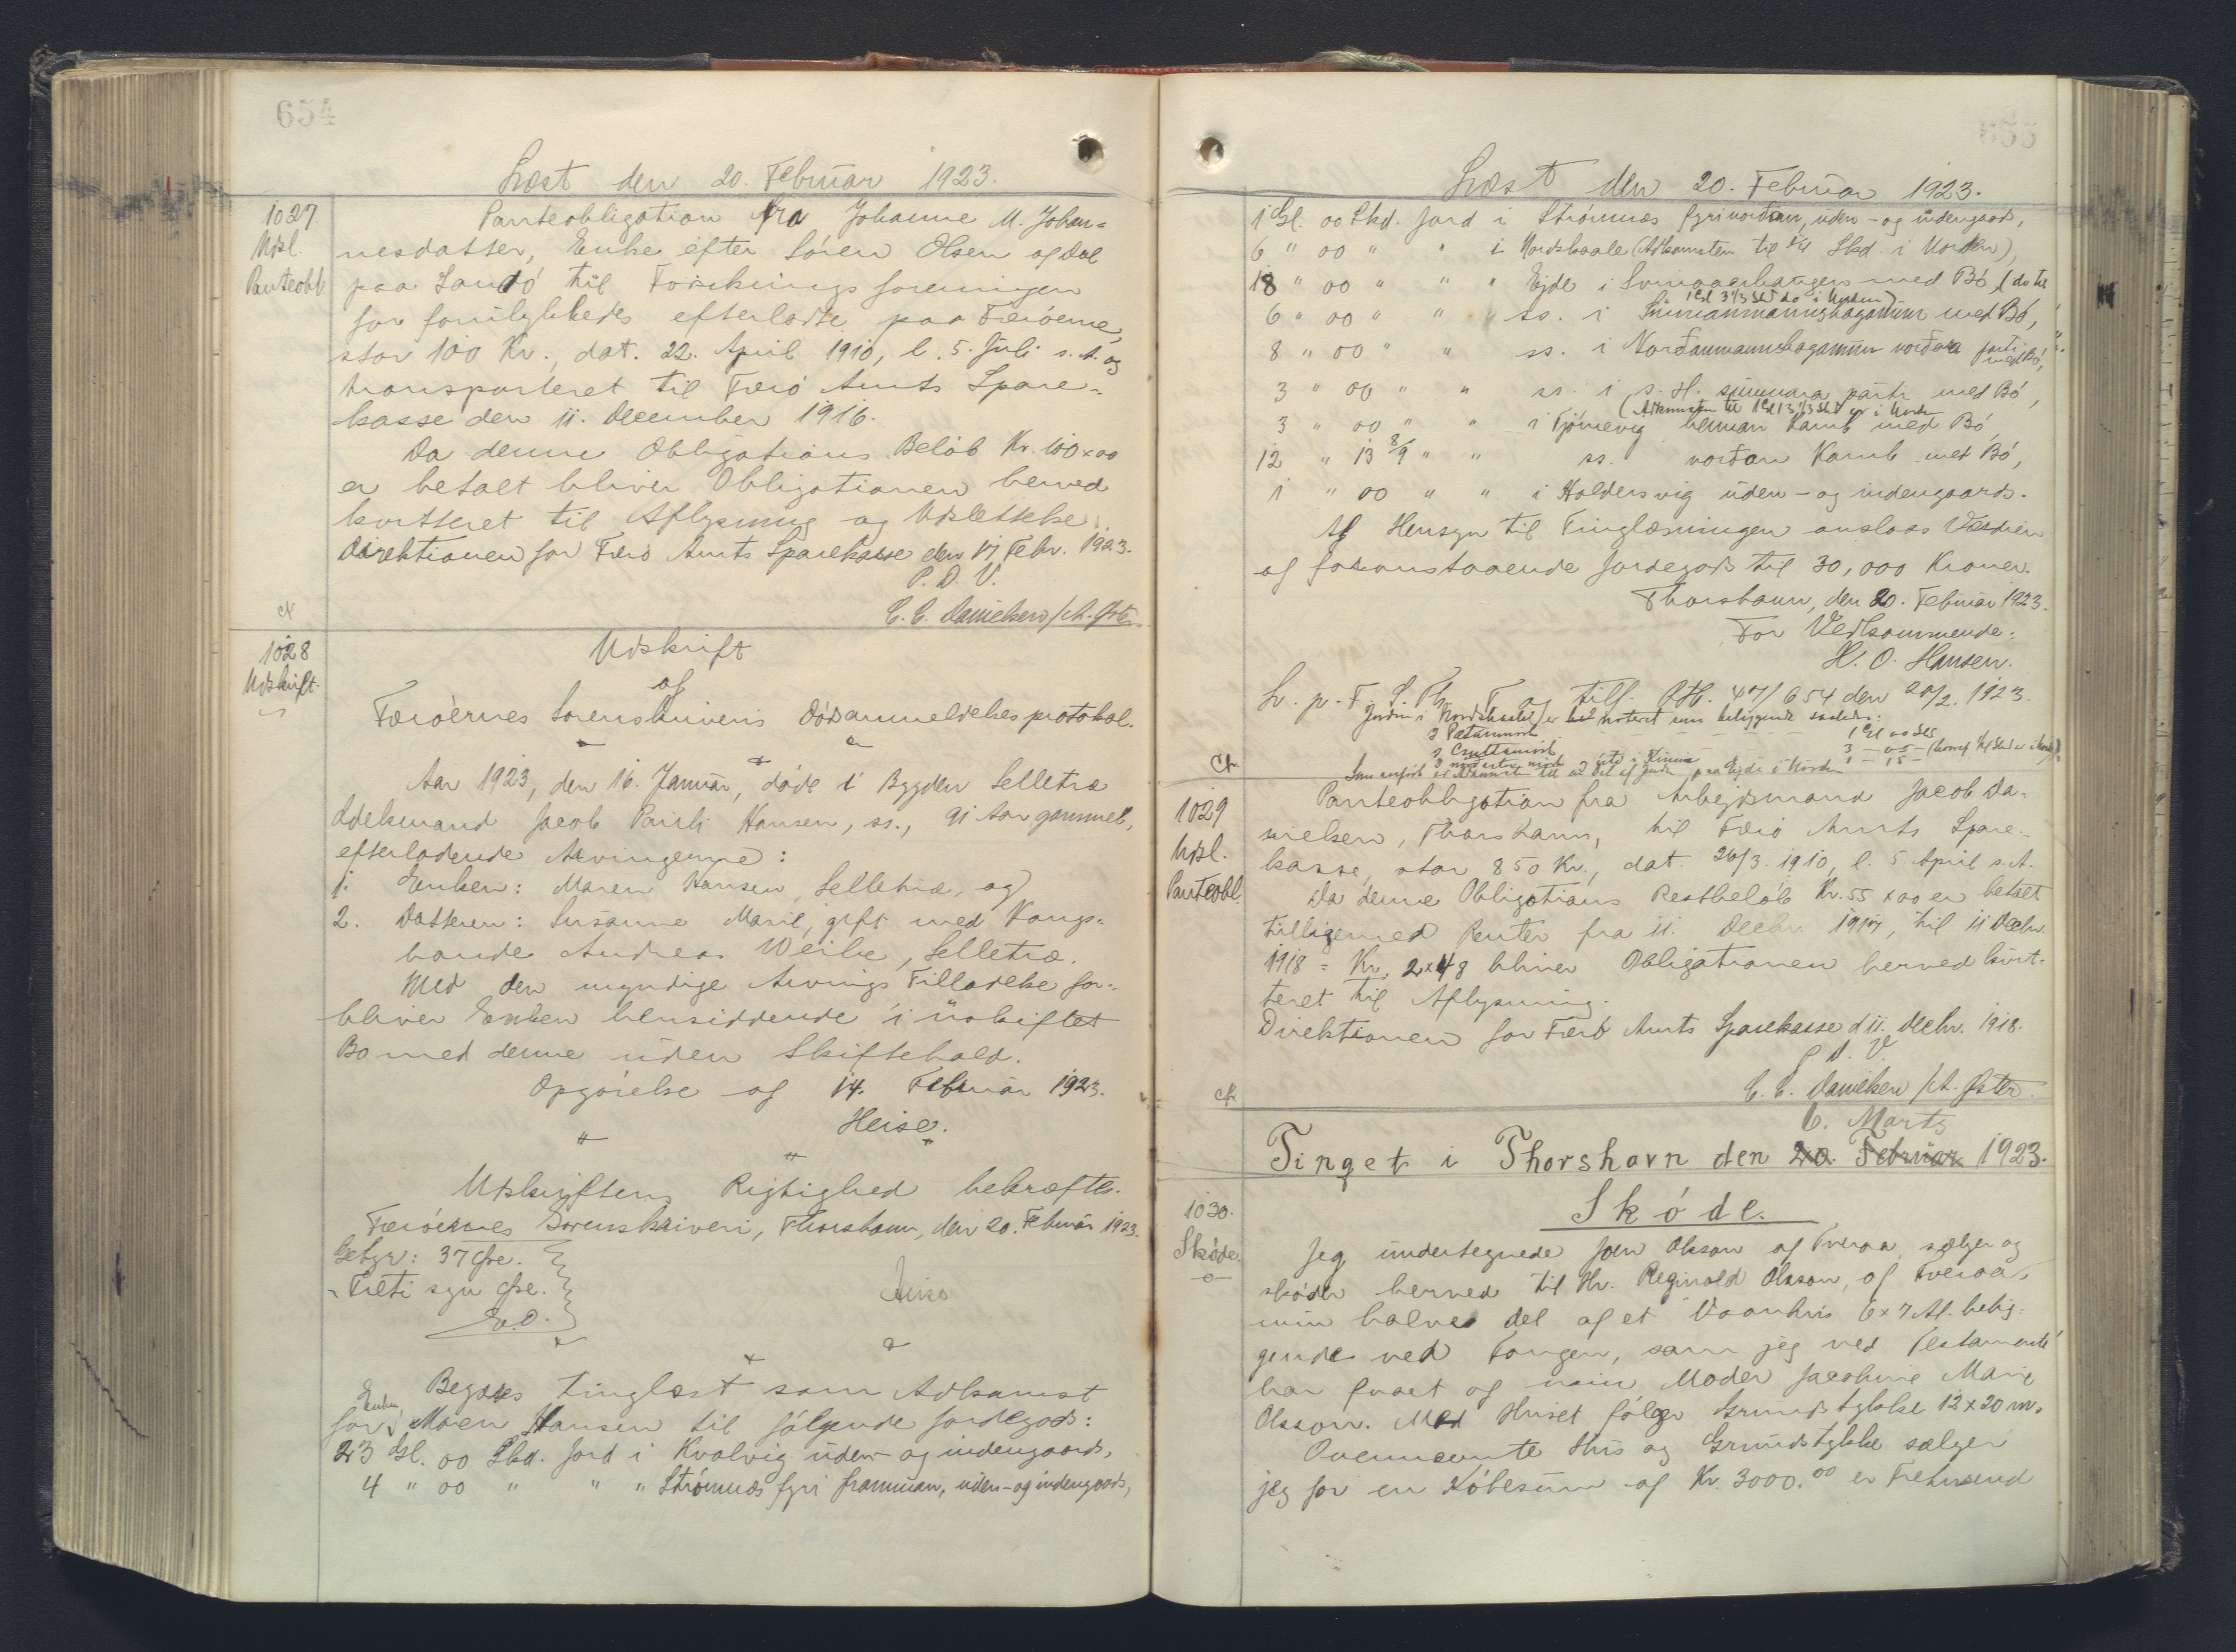 654
Læst den 20. Februar 1923.
1027
Udsl.
Panteobl
Panteobligation fra Johanne M. Johan=
nesdatter, Enke efter Sören Olsen af Dal
paa Sandö til Forsikringsforeningen
for forulykkedes efterladte paa Færöerne,
stor 100 Kr., dat. 22. April 1910, l. 5. Juli s. A. og
transporteret til Færö Amts Spare=
kasse den 11. December 1916.
Da denne Obligations Belöb Kr. 100 x 00
er betalt bliver Obligationen herved
kvitteret til Aflysning og Udslettelse.
Direktionen for Færö Amts Sparekasse den 17 Febr. 1923.
P. D. V.
C. C. Danielsen /A. Öster
1028
Udskrift
Udskrift
af
Færöernes Sorenskriveris Dödsanmeldelsesprotokol.
Aar 1923, den 16. Januar, döde i Bygden Selletræ
Odelsmand Jacob Pauli Hansen, ss., 91 Aar gammel,
efterladende Arvingerne:
1. Enken: Maren Hansen, Selletræ, og
2. Datteren: Susanne Marie, gift med Kongs=
bonde Andreas Weihe, Selletræ.
Med den myndige Arvings Tilladelse for=
bliver Enken hensiddende i uskiftet
Bo med denne uden Skiftehold.
Opgörelse af 14. Februar 1923.
Heise.
Udskriftens Rigtighed bekræftes.
Færöernes Sorenskriveri, Thorshavn, den 20. Februar 1923.
Gebyr: 37 Øre.
Treti syv Øre.
Begæres tinglæst som Adkomst
for Enke Maren Hansen til fölgende Jordegods:
23 Gl. 00 Skd. Jord i Kvalvig uden- og indengaards,
4 " 00 " " " Strömnæs fyri framman, uden- og indengaards,
655
Læst den 20. Februar 1923.
1 Gl. 00 Skd. Jord i Strömnæs fyri nordan, uden- og indengaards,
6 " 00 " " i Nordskaale (Adkomsten til 1/4 Skd. i Norden),
18 " 00 " " " Ejde i med Bö, (do til
1 Gl 3 1/3 Skd do i Norden)
6 " 00 " " ss. i Sunnanmannshagamum med Bö,
8 " 00 " " ss. i Nordanmannshagamum nordara parti med Bö,
3 " 00 " " ss. i s. H. sunnara parti med Bö,
(Adkomsten til 1 Gl 13 1/3 Skd er i Norden
3 " 00 " " i Tjörnevig heiman Kamb med Bö,
12 " 13 8/9 " " ss. nordan Kamb med Bö,
1 " 00 " " i Haldersvig uden- og indengaards.
Af Hensyn til Tinglæsningen anslaas Værdien
af foranstaaende Jordegods til 30,000 Kroner.
Thorshavn, den 20. Februar 1923.
For Vedkommende:
H. O. Hansen.
L. p. F. S. Th. T. og tilf. 47/654 den 20/2. 1923.
Jorden i Nordskaale er noteret som beliggende saaledes:
1029
Udsl.
Panteobl.
Panteobligation fra Arbejdsmand Jacob Da=
nielsen, Thorshavn, til Færö Amts Spare=
kasse, stor 850 Kr., dat. 26/3. 1910, l. 5. April s. A.
Da denne Obligations Restbelöb Kr. 55 x 00 er betalt
tilligemed Renter fra 11. Decbr. 1917, til 11 Decbr.
1918 = Kr. 2 x 48 bliver Obligationen herved kvit=
teret til Aflysning.
Direktionen for Færö Amts Sparekasse d 11. Decbr. 1918.
P. D. V.
C. C. Danielsen /A. Öster.
6. Marts
Tinget i Thorshavn den 20. Februar 1923.
1030.
Sköde.
Sköde.
Jeg undertegnede Joen Olsson af Tveraa, sælger og
sköder herved til Hr. Reginald Olsson, af Tveraa,
min halve Del af et Vaanhus 6 x 7 Al. belig=
gende ved Tangen, som jeg ved Testamente
har faaet af min Moder Jacobine Marie
Olsson. Med Huset fölger Grundstykke 12 x 20 m.
Ovennævnte Hus og Grundstykke sælger
jeg for en Köbesum af Kr. 3000.00 er Tretusend